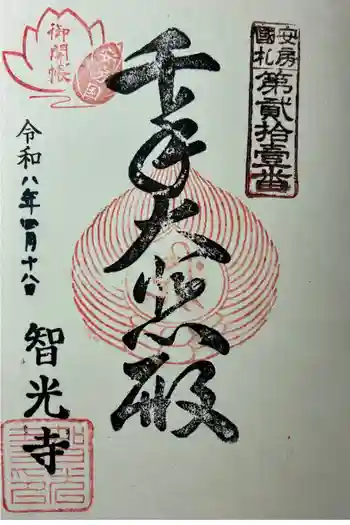 安房
國札
第貳拾壹番
御開帳
安房国
千手大悲殿
令和八年四月十八日
智光寺